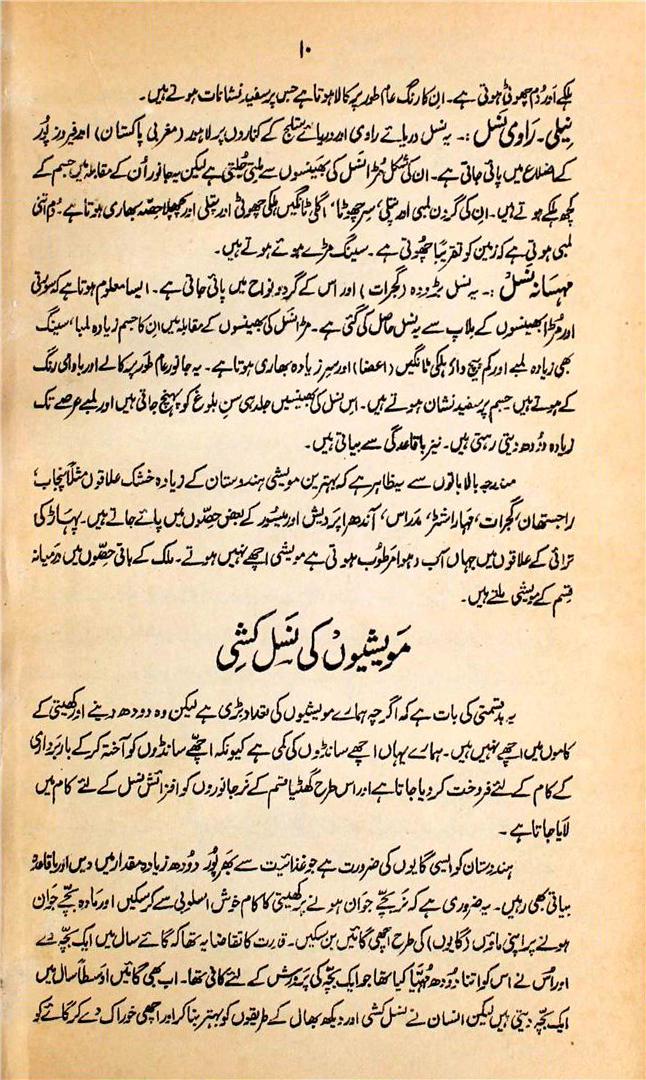 ۱۰
ہلکے اور دُم چھوٹی ہوتی ہے۔ ان کا رنگ عام طور پر کالا ہوتا ہے جس پر سفید نشانات ہوتے ہیں۔
نیلی۔ راوی نسل :۔ یہ نسل دریائے راوی اور دریائے ستلج کے کناروں پر لاہور (مغربی پاکستان) اور فیروز پور
کے اضلاع میں پائی جاتی ہے۔ ان کی شکل مُرّا نسل کی بھینسوں سے ملتی جُلتی ہے لیکن یہ جانور اُن کے مقابلہ میں جسم کے
کچھ ہلکے ہوتے ہیں۔ ان کی گردن لمبی اور پتلی، سر چھوٹا، اگلی ٹانگیں ہلکی چھوٹی اور پتلی اور پچھلا حصّہ بھاری ہوتا ہے۔ دُم اتنی
لمبی ہوتی ہے کہ زمین کو تقریباً چھوتی ہے۔ سینگ مڑے ہوئے ہوتے ہیں۔
مہسانہ نسل :۔ یہ نسل بڑودہ (گجرات) اور اس کے گرد و نواح میں پائی جاتی ہے۔ ایسا معلوم ہوتا ہے کہ سورتی
اور مُرّا بھینسوں کے ملاپ سے یہ نسل حاصل کی گئی ہے۔ مرّا نسل کی بھینسوں کے مقابلہ میں ان کا جسم زیادہ لمبا، سینگ
بھی زیادہ لمبے اور کم پیچ دار ہلکی ٹانگیں (اعضا) اور سر زیادہ بھاری ہوتا ہے۔ یہ جانور عام طور پر کالے اور باداوی رنگ
کے ہوتے ہیں جسم پر سفید نشان ہوتے ہیں۔ اس نسل کی بھینسیں جلد ہی سنِ بلوغ کو پہنچ جاتی ہیں اور لمبے عرصے تک
زیادہ دودھ دیتی رہتی ہیں۔ نیز باقاعدگی سے بیاتی ہیں۔
مندرجہ بالا باتوں سے یہ ظاہر ہے کہ بہترین مویشی ہندوستان کے زیادہ خشک علاقوں مثلاً پنجاب،
راجستھان، گجرات، مہاراشٹر، مدراس، آندھرا پردیش اور میسور کے بعض حصّوں میں پائے جاتے ہیں۔ پہاڑ کی
ترائی کے علاقوں میں جہاں آب و ہوا مرطوب ہوتی ہے مویشی اچھے نہیں ہوتے۔ ملک کے باقی حصّوں میں درمیانہ
قسم کے مویشی ملتے ہیں۔
مویشیوں کی نسل کشی
یہ بدقسمتی کی بات ہے کہ اگرچہ ہمارے مویشیوں کی تعداد بڑی ہے لیکن وہ دودھ دینے اور کھیتی کے
کاموں میں اچھے نہیں ہیں۔ ہمارے یہاں اچھے سانڈوں کی کمی ہے کیونکہ اچھے سانڈوں کو آختہ کر کے باربرداری
کے کام کے لئے فروخت کر دیا جاتا ہے اور اس طرح گھٹیا قسم کے نر جانوروں کو افزائش نسل کے لئے کام میں
لایا جاتا ہے۔
ہندوستان کو ایسی گایوں کی ضرورت ہے جو غذائیت سے بھرپور دودھ زیادہ مقدار میں دیں اور باقاعدہ
بیاتی بھی رہیں۔ یہ ضروری ہے کہ نر بچّے جوان ہونے پر کھیتی کا کام خوش اسلوبی سے کر سکیں اور مادہ بچّے جوان
ہونے پر اپنی ماؤں (گایوں) کی طرح اچھی گائیں بن سکیں۔ قدرت کا تقاضا یہ تھا کہ گائے سال میں ایک بچّہ دے
اور اس نے اس کو اتنا دودھ مہیّا کیا تھا جو ایک بچّہ کی پرورش کے لئے کافی تھا۔ اب بھی گائیں اوسطاً سال میں
ایک بچّہ دیتی ہیں لیکن انسان نے نسل کشی اور دیکھ بھال کے طریقوں کو بہتر بنا کر اور اچھی خوراک دے کر گائے کو